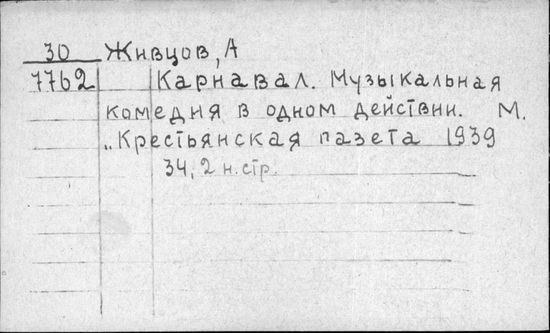 30 Живцов, А
7762 Карнавал. Музыкальная
комедия в одном действии. М.
„Крестьянская газета 1939
34, 2 н.стр.